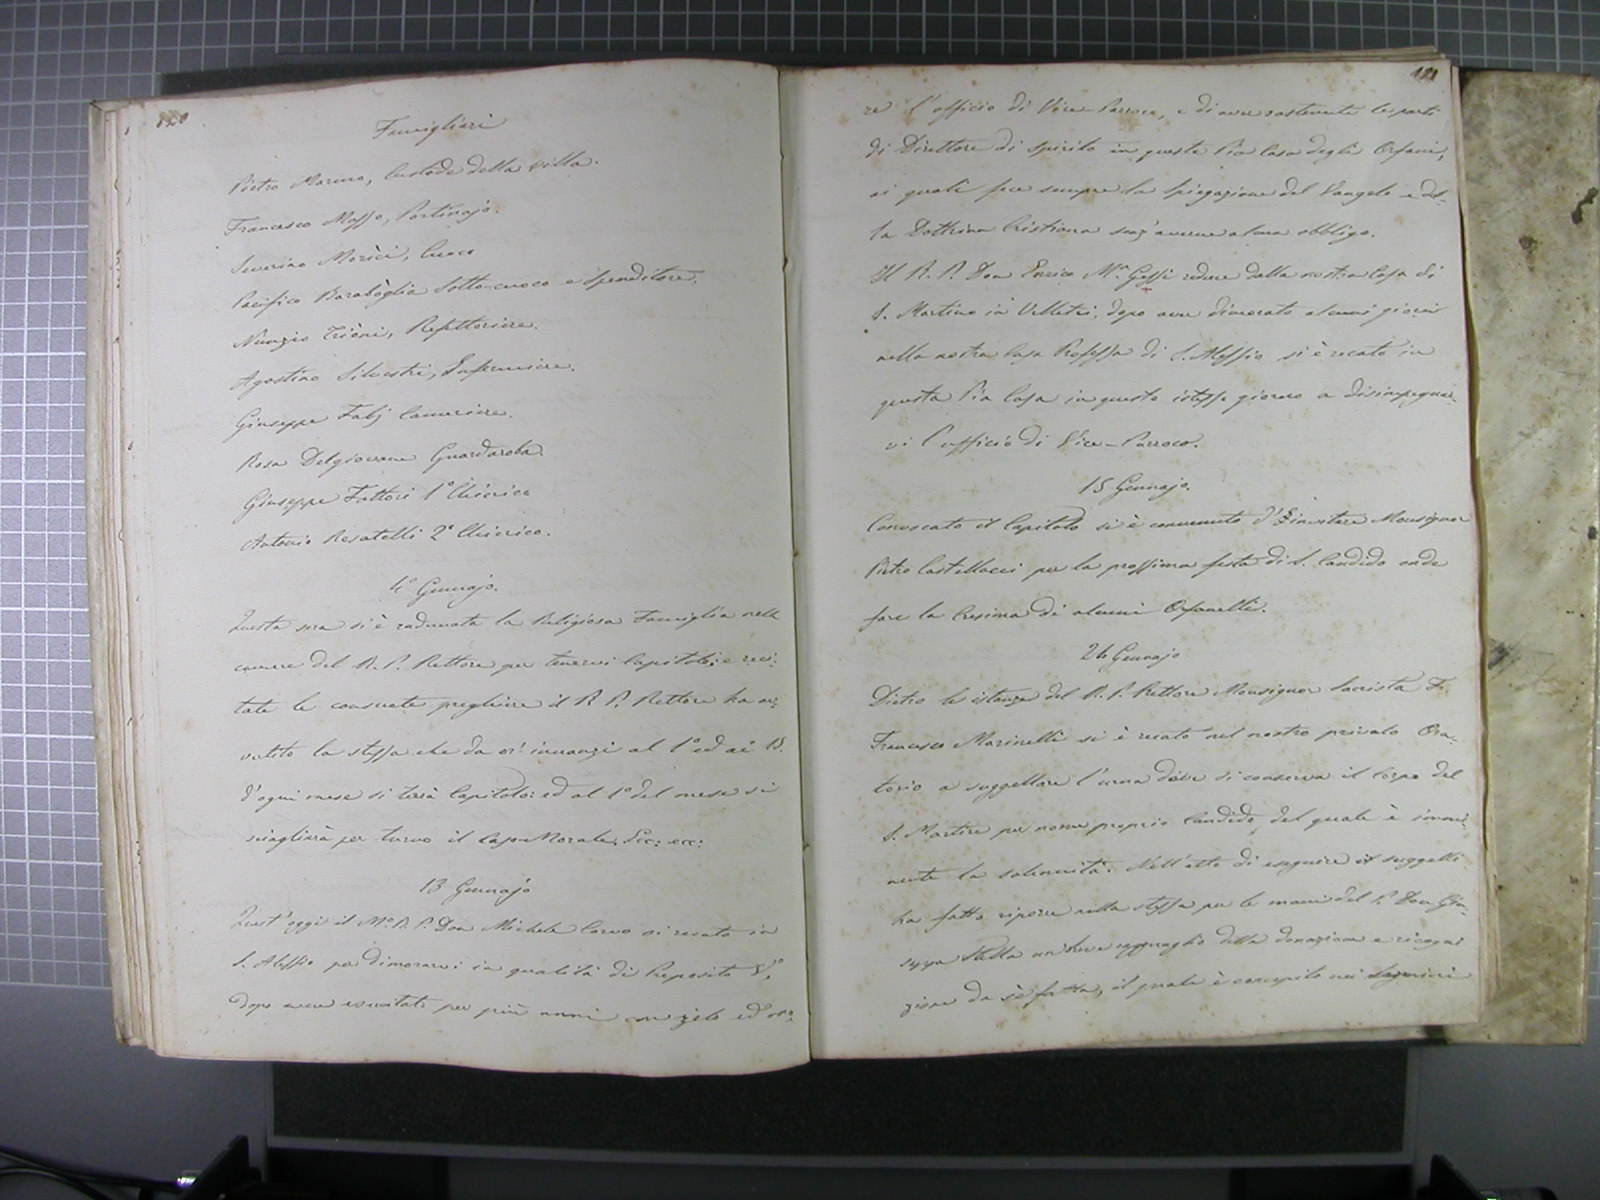 120
Famigliari
Pietro Marma, Custode della villa.
Francesco Masso, Portinajo.
Severino Morìci, Cuoco
Pacifico Barabòglia Sotto-cuoco e Spenditore.
Nunzio Trioni, Refettoriere.
Agostino Silvestri, Infermiere.
Giuseppe Fabj Cameriere.
Rosa Delgiovane Guardaroba.
Giuseppe Fattori 1° Chierico
Antonio Rosatelli 2° Chierico.
4° Gennajo.
Questa sera si è radunata la Religiosa Famiglia nelle
camere del R. P. Rettore per tenervi Capitolo; e reci-
tate le consuete preghiere il R. P. Rettore ha av-
vertito la stessa che da or' innanzi al 1° ed ai 15.
d'ogni mese si terrà Capitolo: ed al 1° del mese si
sciaglierà per turno il Caso Morale. Ecc: ecc:
13 Gennajo
Quest'oggi il M.° R. P. Don Michele Corvo si recato in
S. Alessio per dimorarvi in qualità di Preposito
dopo avere esercitato per più anni con zelo ed
121
re l'officio di Vice-Parroco, e di aver sostenute le parti
di Direttore di spirito in questa Pia Casa degli Orfani,
ai quali fece sempre la spiegazione del Vangelo e del-
la Dottrina Cristiana senz'averne alcun obbligo.
Il R. P. Don Enrico M.ª Gessi reduce dalla nostra Casa di
S. Martino in Velletri, dopo aver dimorato alcuni giorni
nella nostra Casa Professa di S. Alessio si è recato in
questa Pia Casa in questo istesso giorno a disimpegnar-
vi l'officio di Vice-Parroco.
15 Gennajo.
Convocato il Capitolo si è convenuto d'invitare Monsignor
Pietro Castellacci per la prossima festa di S. Candido onde
fare la Cresima di alcuni Orfanelli.
26 Gennajo
Dietro le istanze del R. P. Rettore Monsignor Sacrista F.
Francesco Marinelli si è recato nel nostro privato Ora-
torio a suggellare l'urna dove si conserva il Corpo del
S. Martire per nome proprio Candido, del quale è immi-
nente la solennità. Nell'atto di eseguire i suggelli
ha fatto riporre nella stessa per le mani del P. Don Giu-
seppe Stella un breve ragguaglio della donazione e ricogni
zione da sè fatta, il quale è concepito nei termini